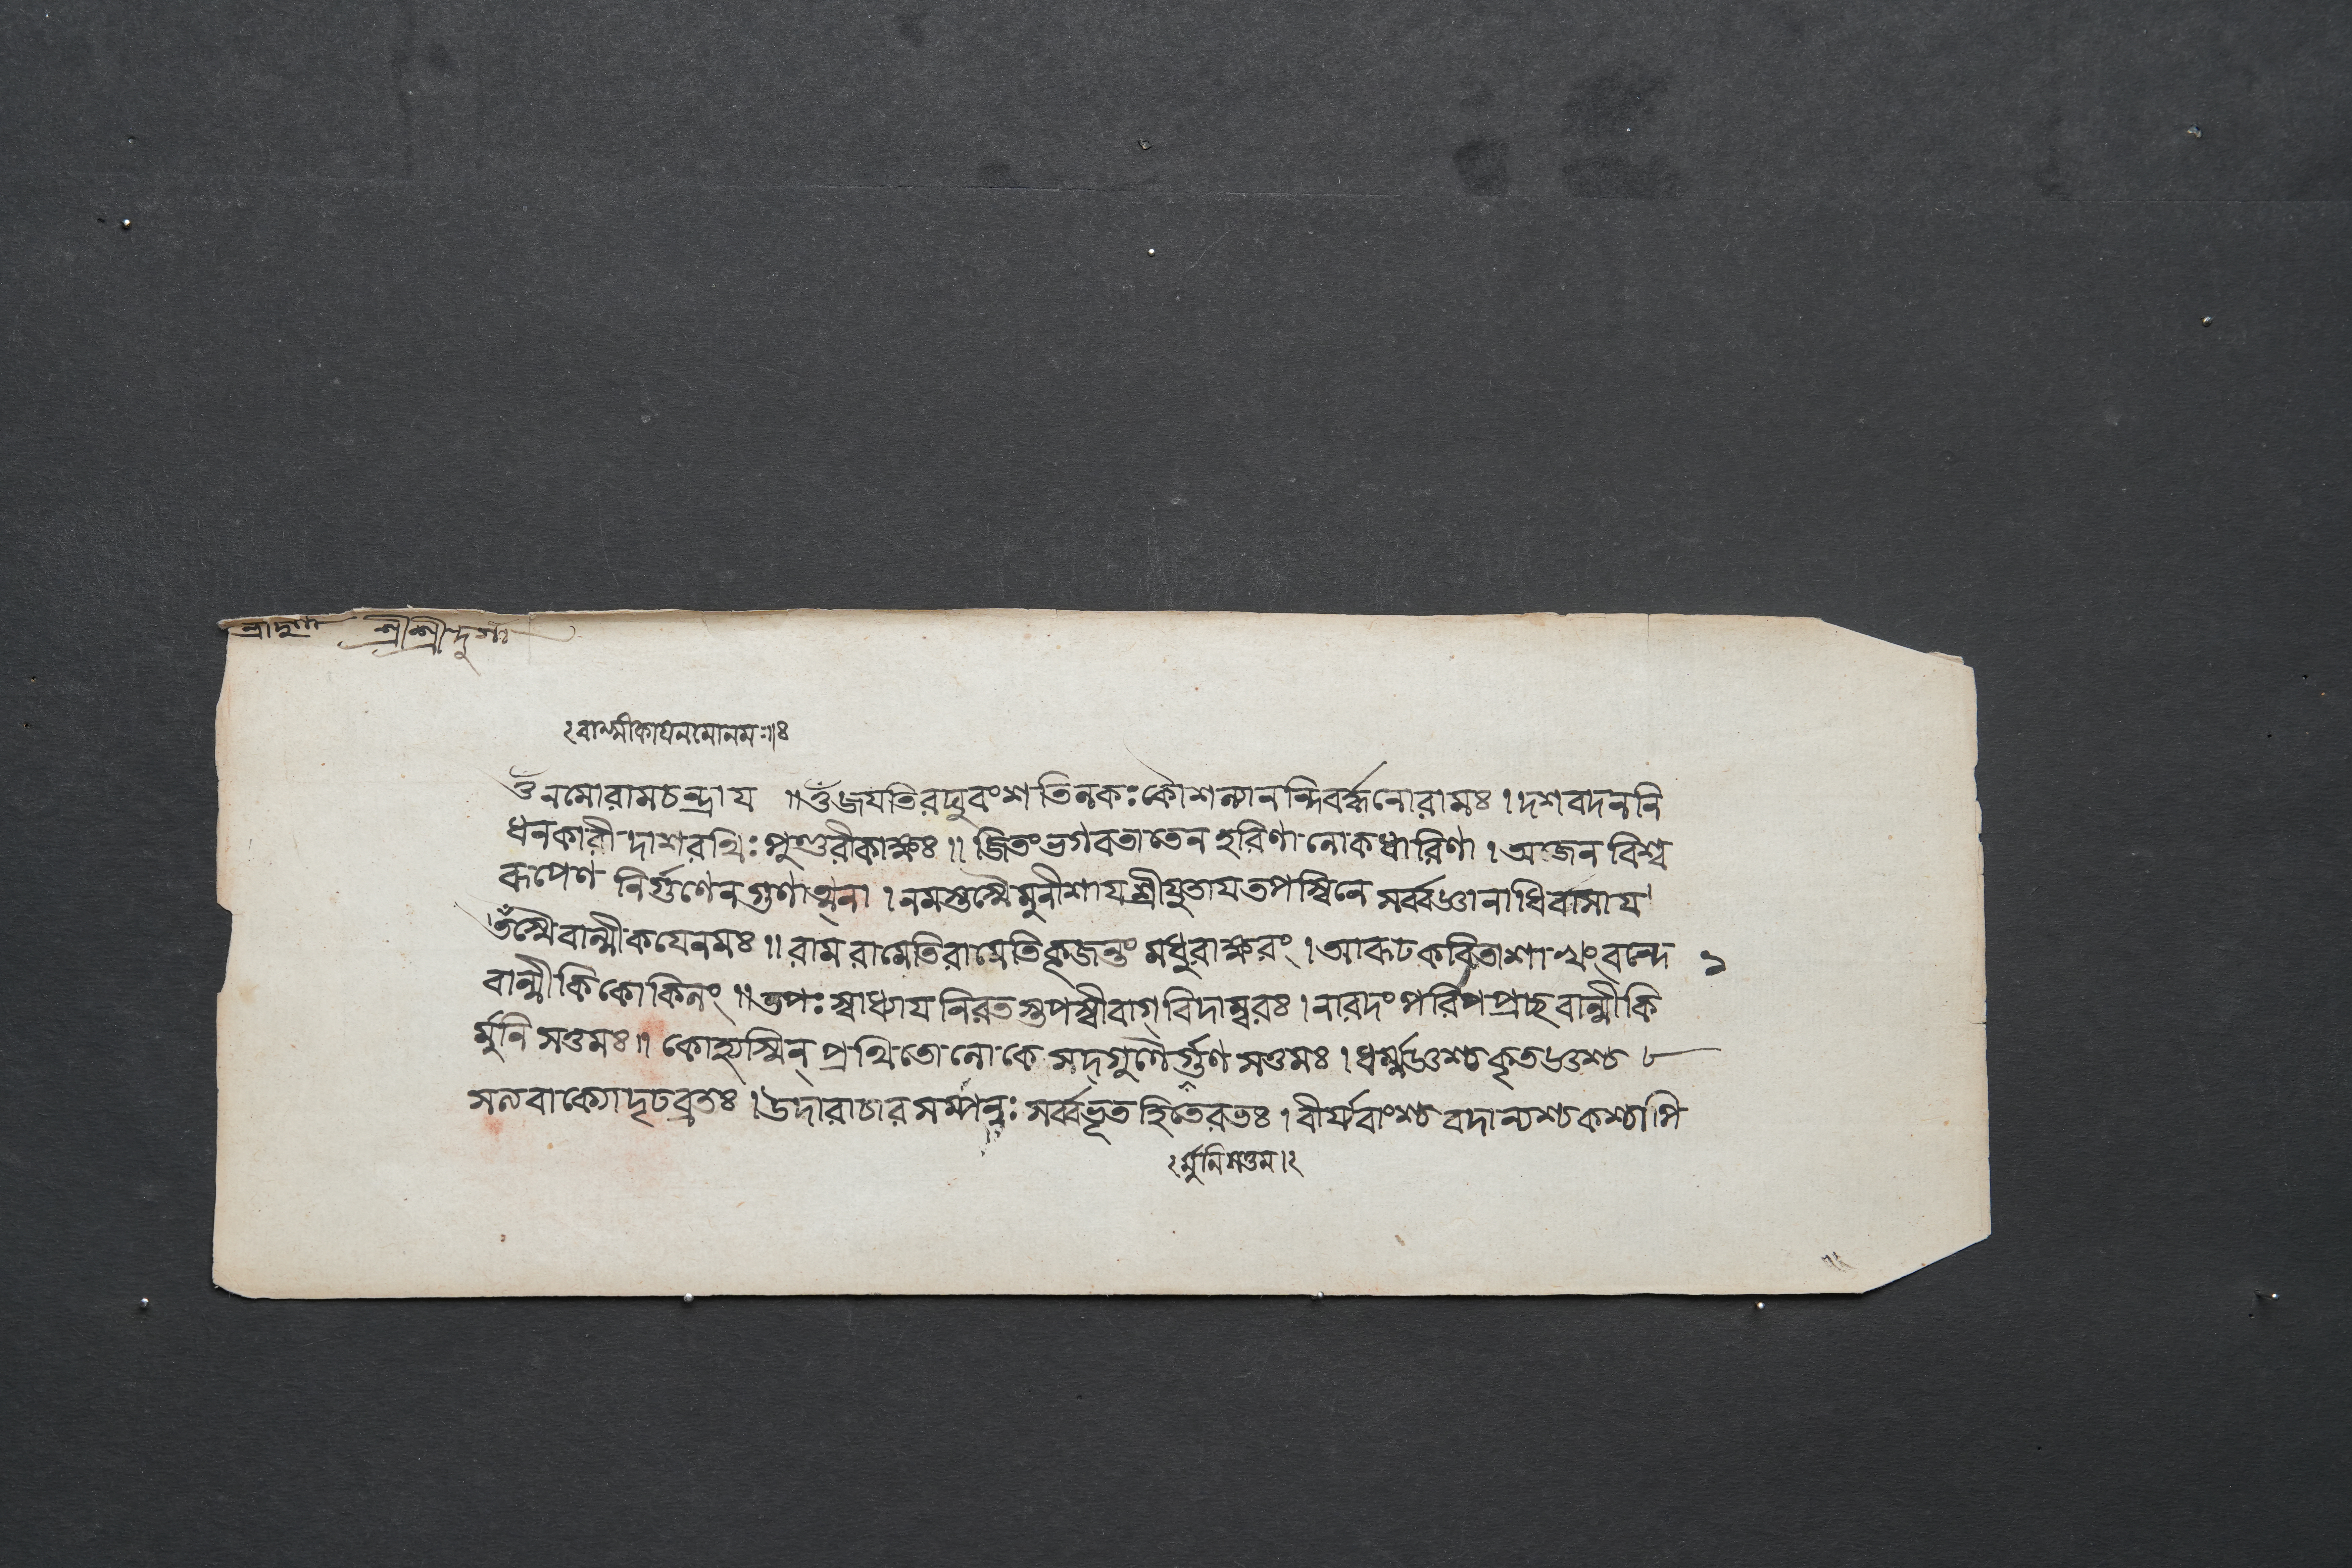 শ্রীদুর্গা শ্রীশ্রীদুর্গা
বাল্মীকায়নমোনমঃ॥ঃ
ওঁনমোরামচন্দ্রায ॥ওঁজযতিরঘুবংশতিলকঃকৌশল্যানন্দিবর্দ্ধনোরামঃ। দশবদননি
ধনকারী দাশরথিঃপুণ্ডরীকাক্ষঃ॥ জিতংভগবতাতেনহরিণালোকধারিণা।অজেনবিশ্ব
রূপেণ নির্গুণেনগুণাত্মনা।নমস্তস্মৈমুনীশাযশ্রীযুতাযতপস্বিনে সর্ব্বজ্ঞানাধিবাসায
তস্মৈবাল্মীকযেনমঃ॥রামরামেতিরামেতিকূজন্তংমধুরাক্ষরং।আরূঢকবিতাশাখংবন্দে ১
বাল্মীকিকোকিলং॥তপঃস্বাধ্যাযনিরতস্তপস্বীবাগ্বিদাম্বরঃ।নারদংপরিপপ্রাছবাল্মীকি
র্মুনিসত্তমঃ॥ কোহ্যস্মিন্প্রথিতোলোকেসদ্গুণৈর্গুণসত্তমঃ।ধর্ম্মজ্ঞশ্চকৃতজ্ঞশ্চ
সত্যবাক্যোদৃঢব্রতঃ।উদারাচারসম্পন্নঃসর্ব্বভূতহিতেরতঃ।বীর্যবাংশ্চবদান্যশ্চকশ্চাপি
র্মুনিসত্তম।